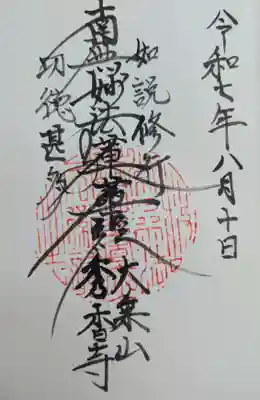 令和七年八月十日
如説修行
南無妙法蓮華経
功徳甚多
秀香寺